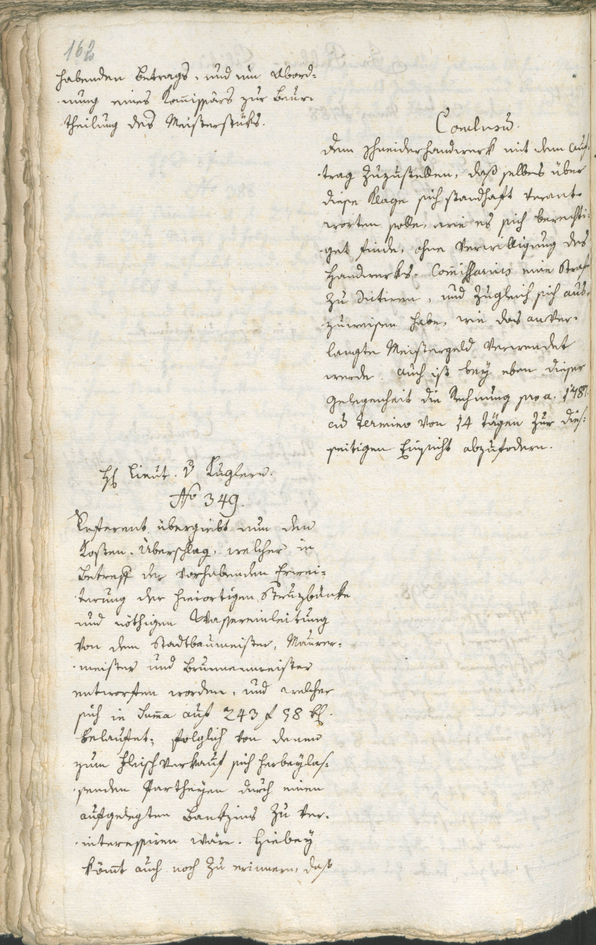 162
habenden Betrags, und um Abord-
nung eines Kom̄issärs zur Beur-
theilung des Meisterstüks.
Conclusum.
dem Schneiderhandwerk mit dem Auf-
trag zuzustellen, daß selbes über
diese Klage sich standhaft verant-
worten solle, wie es sich berechti-
get finde, ohne Verwilligung des
Handwerks-Com̄issarius eine Straf
zu dictiren, und zugleich sich aus-
zuweisen habe, wie das anver-
langte Meistergeld verwendet
werde. Auch ist bey eben dieser
Gelegenheit die Rechnung pro a. 1787
cum Termino von 14 Tägen zur dies-
seitigen Einsicht abzufodern.
H. Lieut. v Kuglern.
No 349.
Referent übergiebt nun den
Kosten-Überschlag, welcher in
Betreff der vorhabenden Erwei-
terung der hierortigen
und nöthigen Wassereinleitung
von dem Stadtbaumeister, Maurer-
meister und Brunnenmeister
entworffen worden, und welcher
sich in Suma auf 243 f 58 kr.
belaufet; folglich von denen
zum Fleischverkauf sich herbeylas-
senden Partheyen durch einen
aufgelegten Bankzins zu ver-
interessiren wäre. Hiebey
köm̄t auch noch zu erinnern, daß